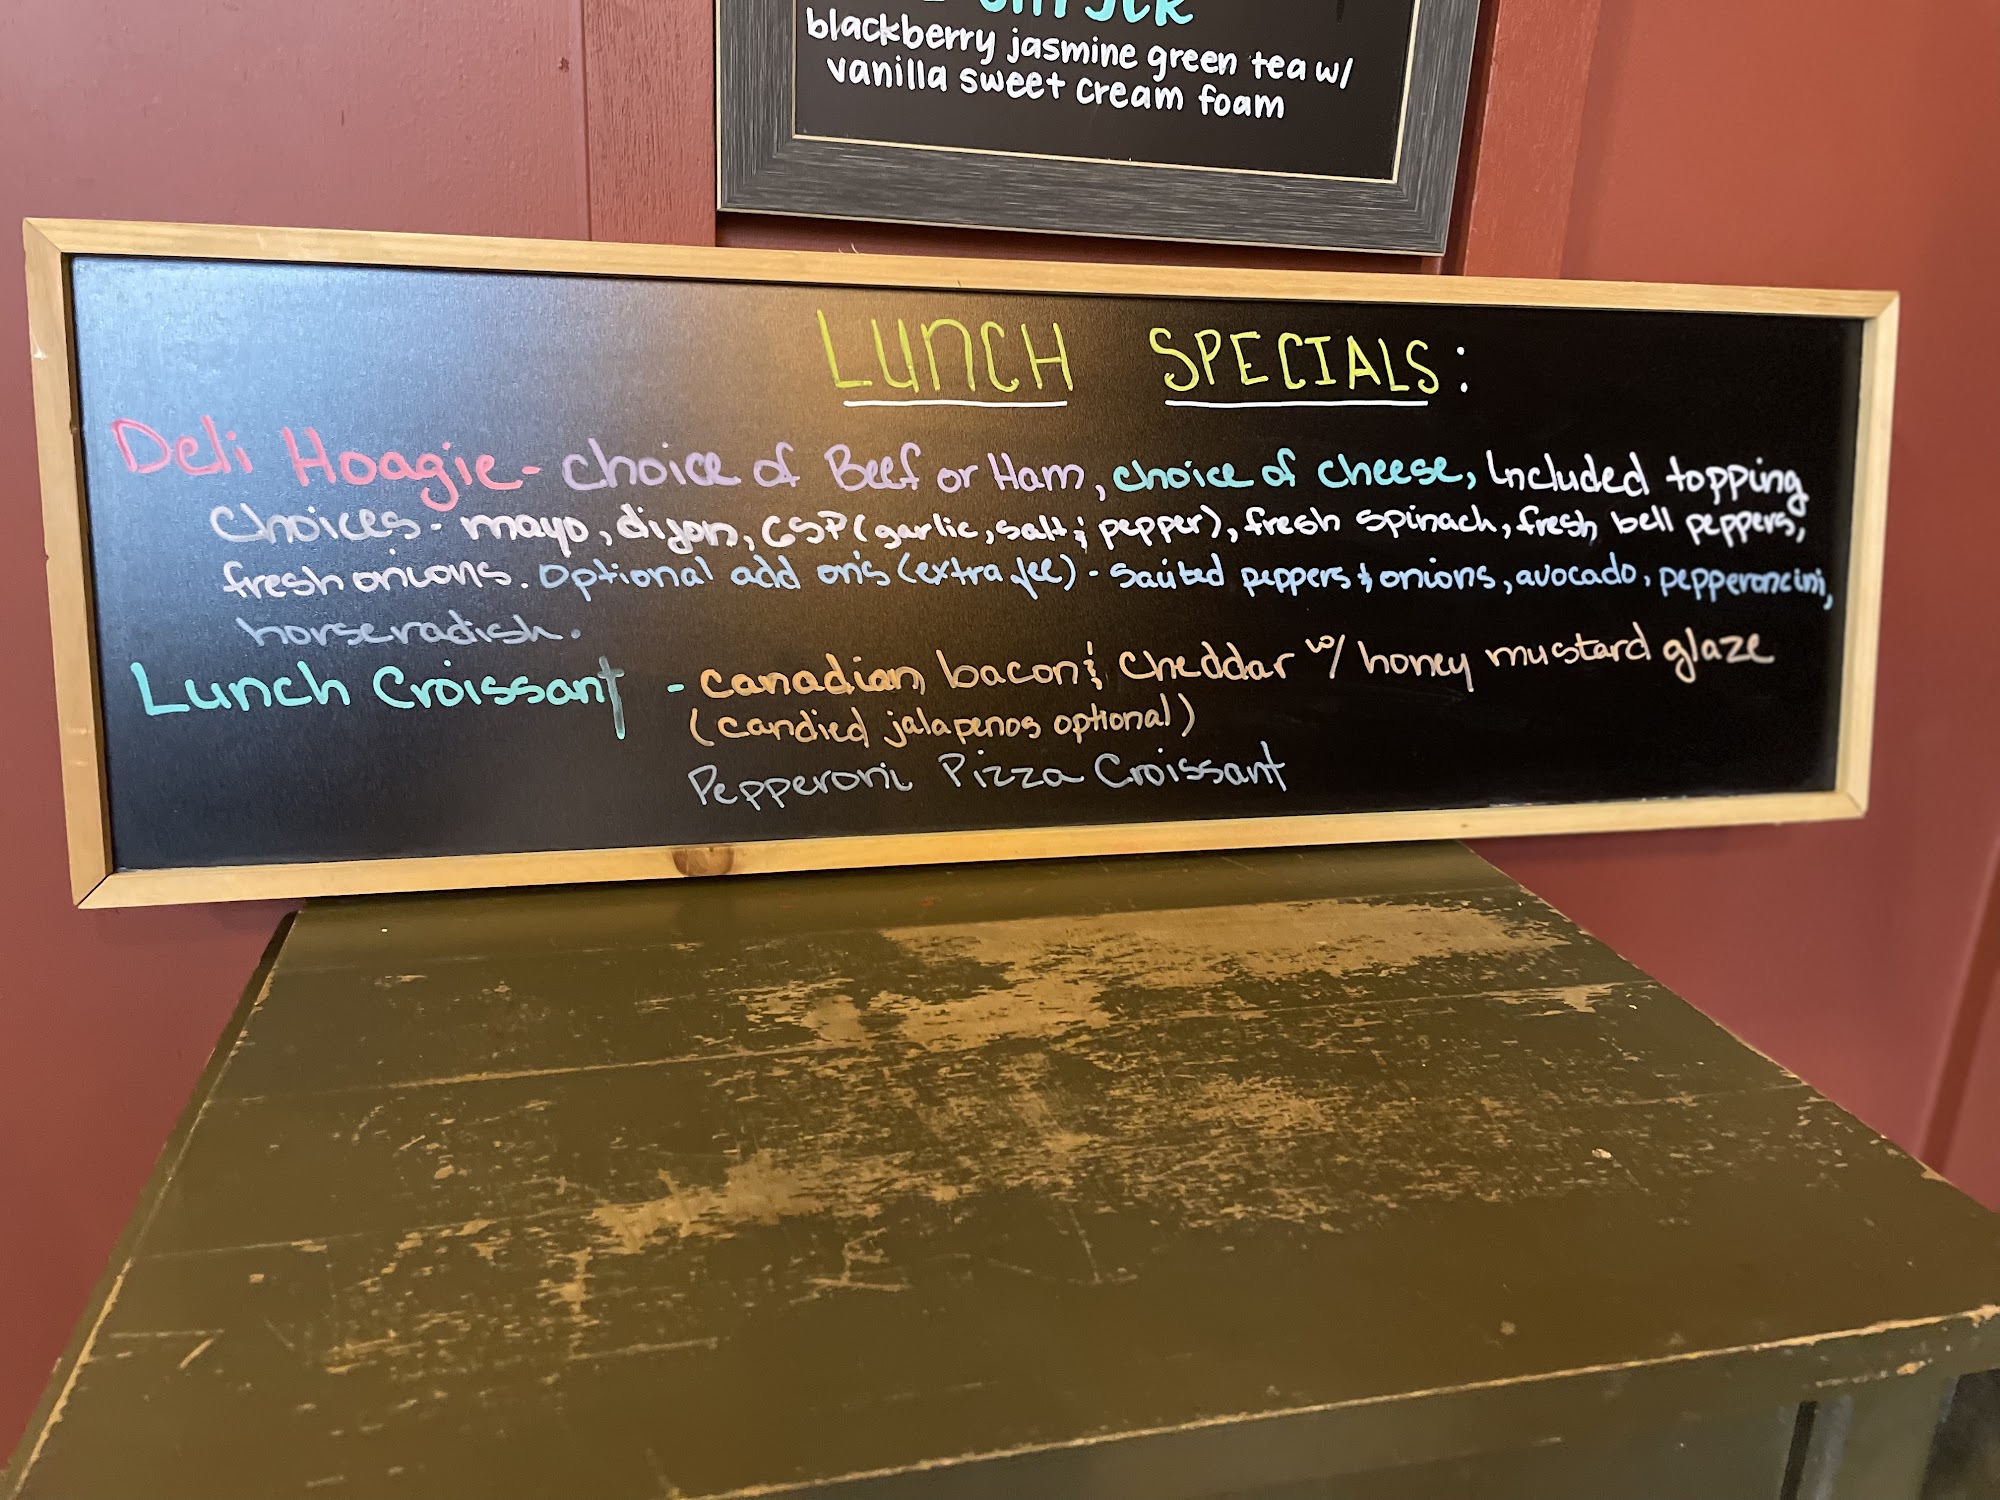 blackberry jasmine green tea w/
vanilla sweet cream foam
LUNCH SPECIALS:
Deli Hoagie - choice of Beef or Ham, choice of cheese, Included topping
choices - mayo, dijon, GSP (garlic, salt & pepper), fresh spinach, fresh bell peppers,
fresh onions. Optional add on's (extra fee) - Sauted peppers & onions, avocado, pepperoncini,
horseradish.
Lunch Croissant - Canadian bacon & Cheddar w/ honey mustard glaze
(candied jalapenos optional)
Pepperoni Pizza Croissant